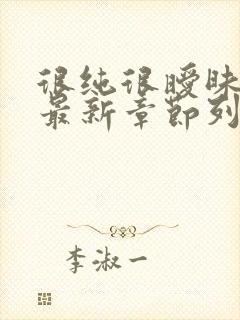 很纯很暧昧
最新章节列
李淑一